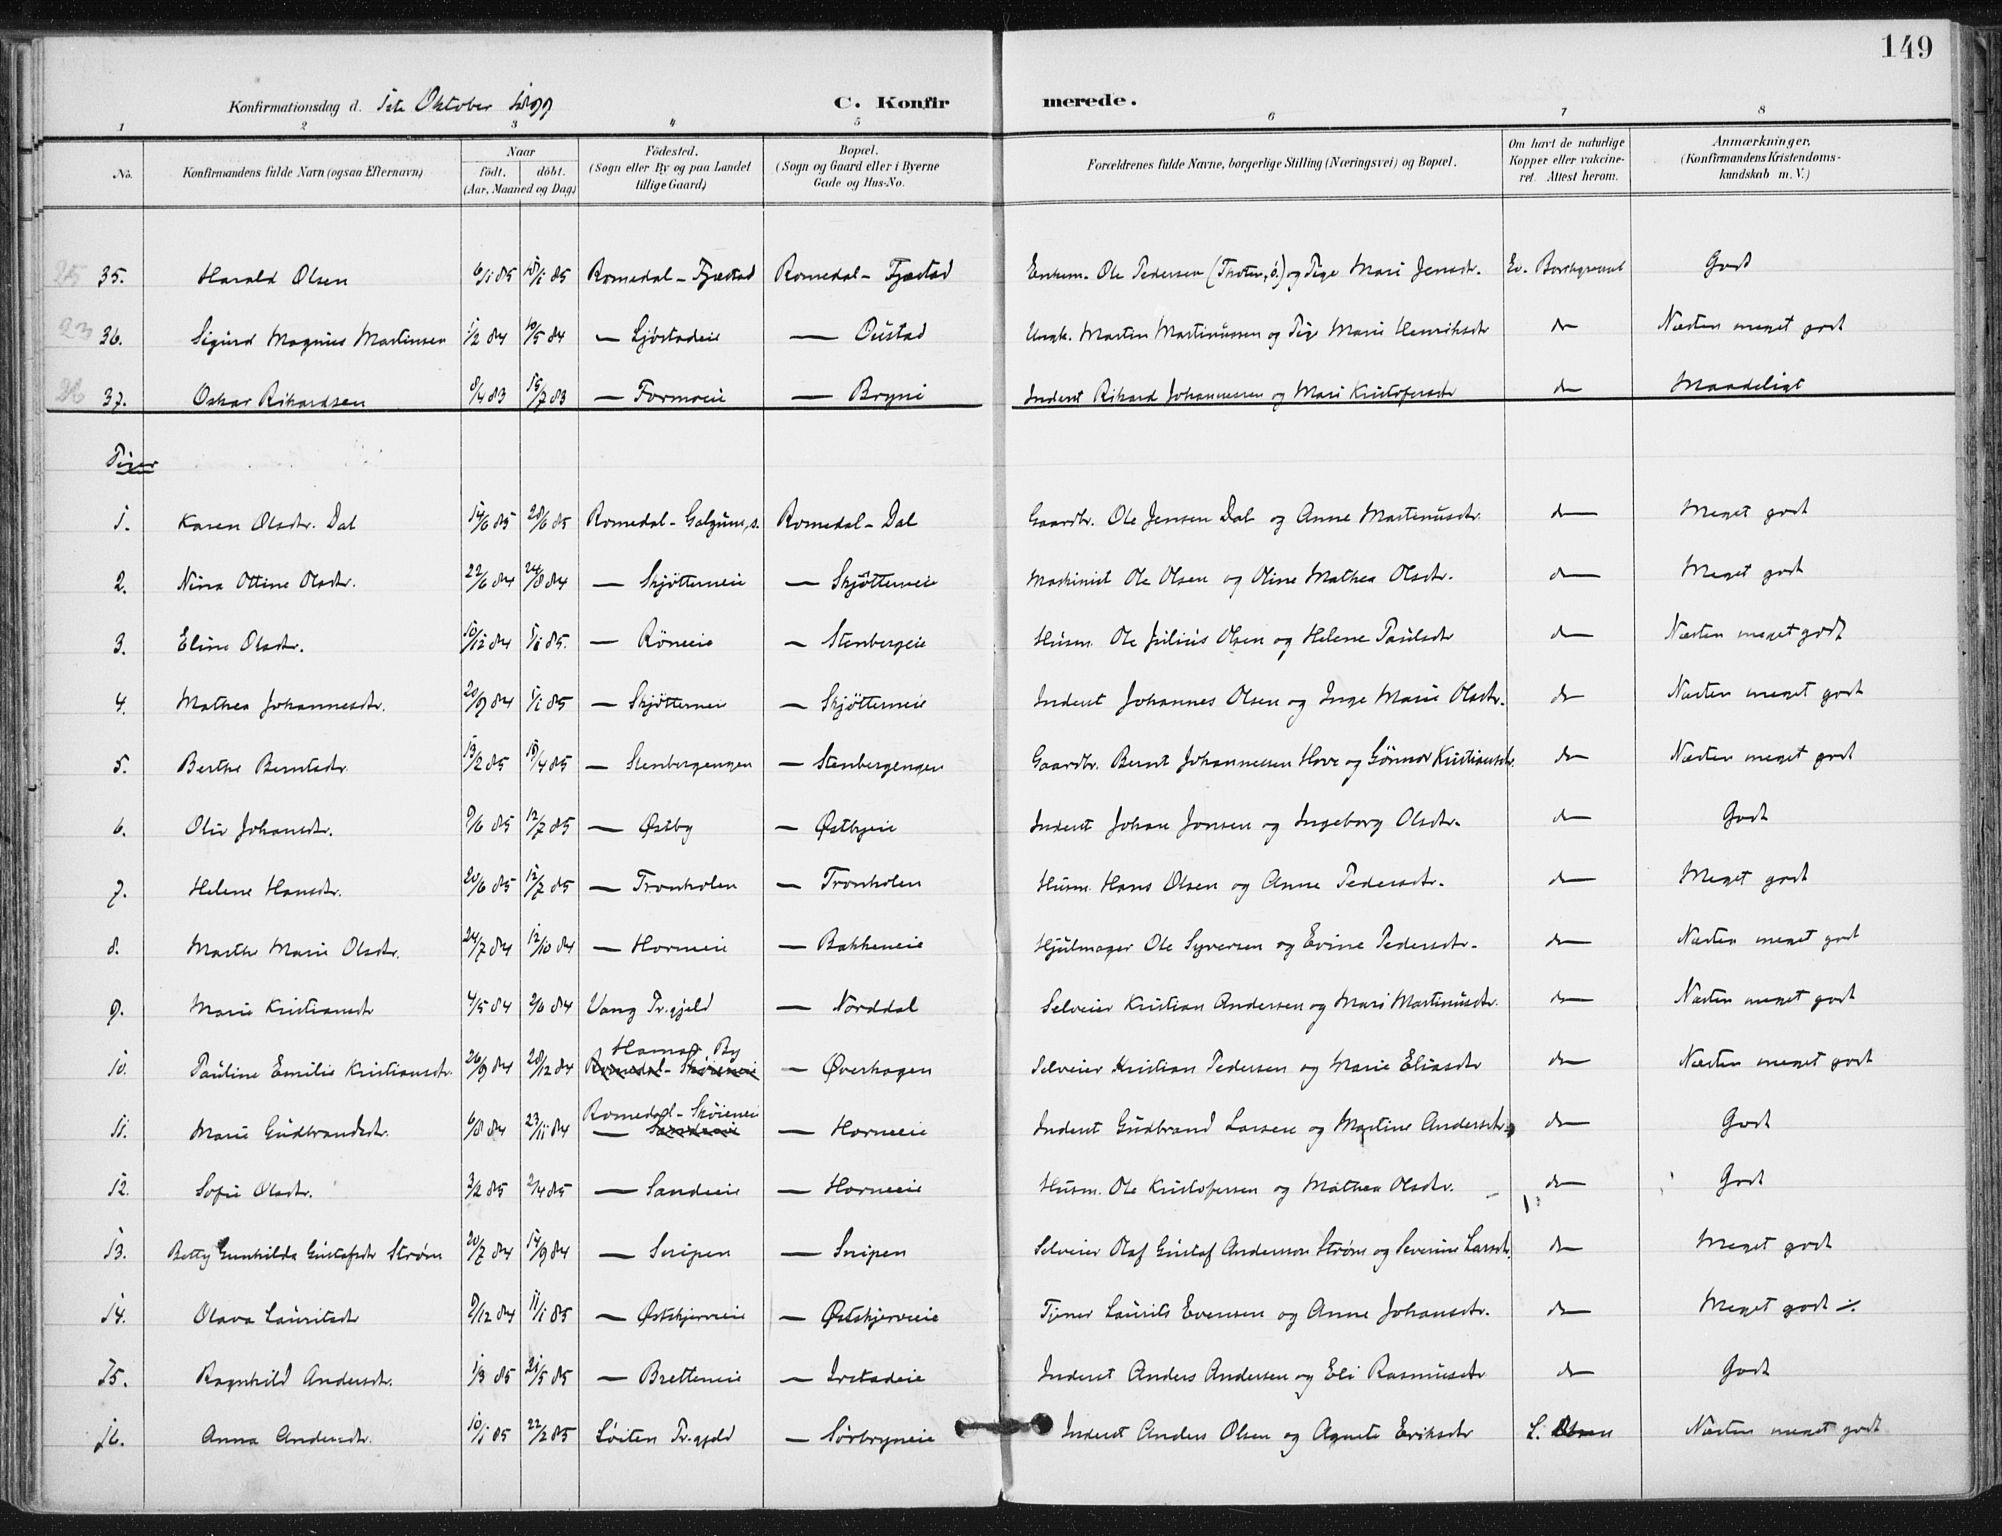 149
Konfirmationsdag d. 1ste Oktober 1899 C. Konfirmerede.
1 2 3 4 5 6 7 8
No. Konfirmandens fulde Navn (ogsaa Efternavn) Naar födt. döbt. (Aar, Maaned og Dag) Födested. (Sogn eller By og paa Landet tillige Gaard) Bopæl. (Sogn og Gaard eller i Byerne Gade og Hus-No.) Forældrenes fulde Navne, borgerlige Stilling (Næringsvei) og Bopæl. Om havt de naturlige Kopper eller vakcineret. Attest herom. Anmærkninger. (Konfirmandens Kristendomskundskab m. V.)
25 35. Harald Olsen 6/1 85 18/1 85 Romedal - Fjæstad Romedal - Fjæstad Enkem. Ole Pedersen (Thoten, ö.) og Pige Mari Jensdtr. Ev. Borchgrevink Godt
23 36. Sigurd Magnus Martinsen 1/2 84 10/5 84 — Sjöstadeie — Oustad Ungk. Martin Martinussen og Pige Marie Henriksdtr do Næsten meget godt
26 37. Oskar Rikardsen 8/4 83 15/7 83 — Formoeie — Bryni Inderst Rikard Johannessen og Mari Kristofersdtr do Maadeligt
Piger
1. Karen Olsdtr. Dal 14/6 85 28/6 85 Romedal - Galgum, s. Romedal - Dal Gaardbr. Ole Jensen Dal og Anne Martinusdtr. do Meget godt
2. Nina Ottine Olsdtr. 22/6 84 24/8 84 — Skjötterneie — Skjötterneie Maskinist Ole Olsen og Oline Mathea Olsdtr. do Meget godt
3. Eline Olsdtr. 10/12 84 1/1 85. — Röneeie — Stenbergeie Husm. Ole Julius Olsen og Helene Paulsdtr do Næsten meget godt
4. Mathea Johannesdtr. 20/9 84 1/1 85 — Skjötterneie — Skjötterneie Inderst Johannes Olsen og Inge Marie Olsdtr. do Næsten meget godt
5. Berthe Berntsdtr. 13/2 85 19/4 85 — Stenbergengen — Stenbergengen Gaardbr. Bernt Johannessen Hove og Gunnor Kristiansdtr. do Næsten meget godt
6. Oliv Johansdtr. 9/6 85 12/7 85 — Østby — Østbyeie Inderst Johan Jonsen og Ingeborg Olsdtr. do Godt
7. Helene Hansdtr. 20/6 85 12/7 85 — Tronholen — Tronholen Husm. Hans Olsen og Anne Pedersdtr. do Meget godt
8. Marthe Marie Olsdtr. 24/7 84 12/10 84 — Horneeie — Bakkeneie Hjulmager Ole Syversen og Evine Pedersdtr. do Næsten meget godt
9. Marie Kristiansdtr 4/5 84 2/6 84 Vang Pr.gjeld — Norddal Selveier Kristian Andersen og Mari Martinusdtr. do Næsten meget godt
10. Pauline Emilie Kristiansdtr. 26/9 84 28/12 84 Hamar By Romedal - Sköieneie — Øverhagen Selveier Kristian Pedersen og Marie Eliasdtr do Næsten meget godt
11. Marie Gudbrandsdtr. 6/8 84 23/11 84 Romedal - Sköieneie — Sandeeie — Horneeie Inderst Gudbrand Larsen og Martine Andersdtr. do Godt
12. Sofie Olsdtr. 3/2 85 2/4 85 — Sandeeie — Horneeie Husm. Ole Kristofersen og Mathea Olsdtr. do Godt
13. Betty Gunhilda Gustafsdtr Ström 20/7 84 14/9 84 — Snipen — Snipen Selveier Olaf Gustaf Andersson Ström og Severine Larsdtr. do Meget godt
14. Olava Lauritsdtr 9/12 84 11/1 85 — Østskjerveeie — Østskjerveeie Tjener Laurits Evensen og Anne Johansdtr. do Meget godt ./.
15. Ragnhild Andersdtr. 1/3 85 21/5 85 — Bretteneie — Irstadeie Inderst Anders Andersen og Eli Rasmusdtr do Godt
16. Anna Andersdtr. 10/1 85 22/2 85 Löiten Pr.gjeld — Sörbryneie Inderst Anders Olsen og Agnete Eriksdtr L. Olsen Næsten meget godt